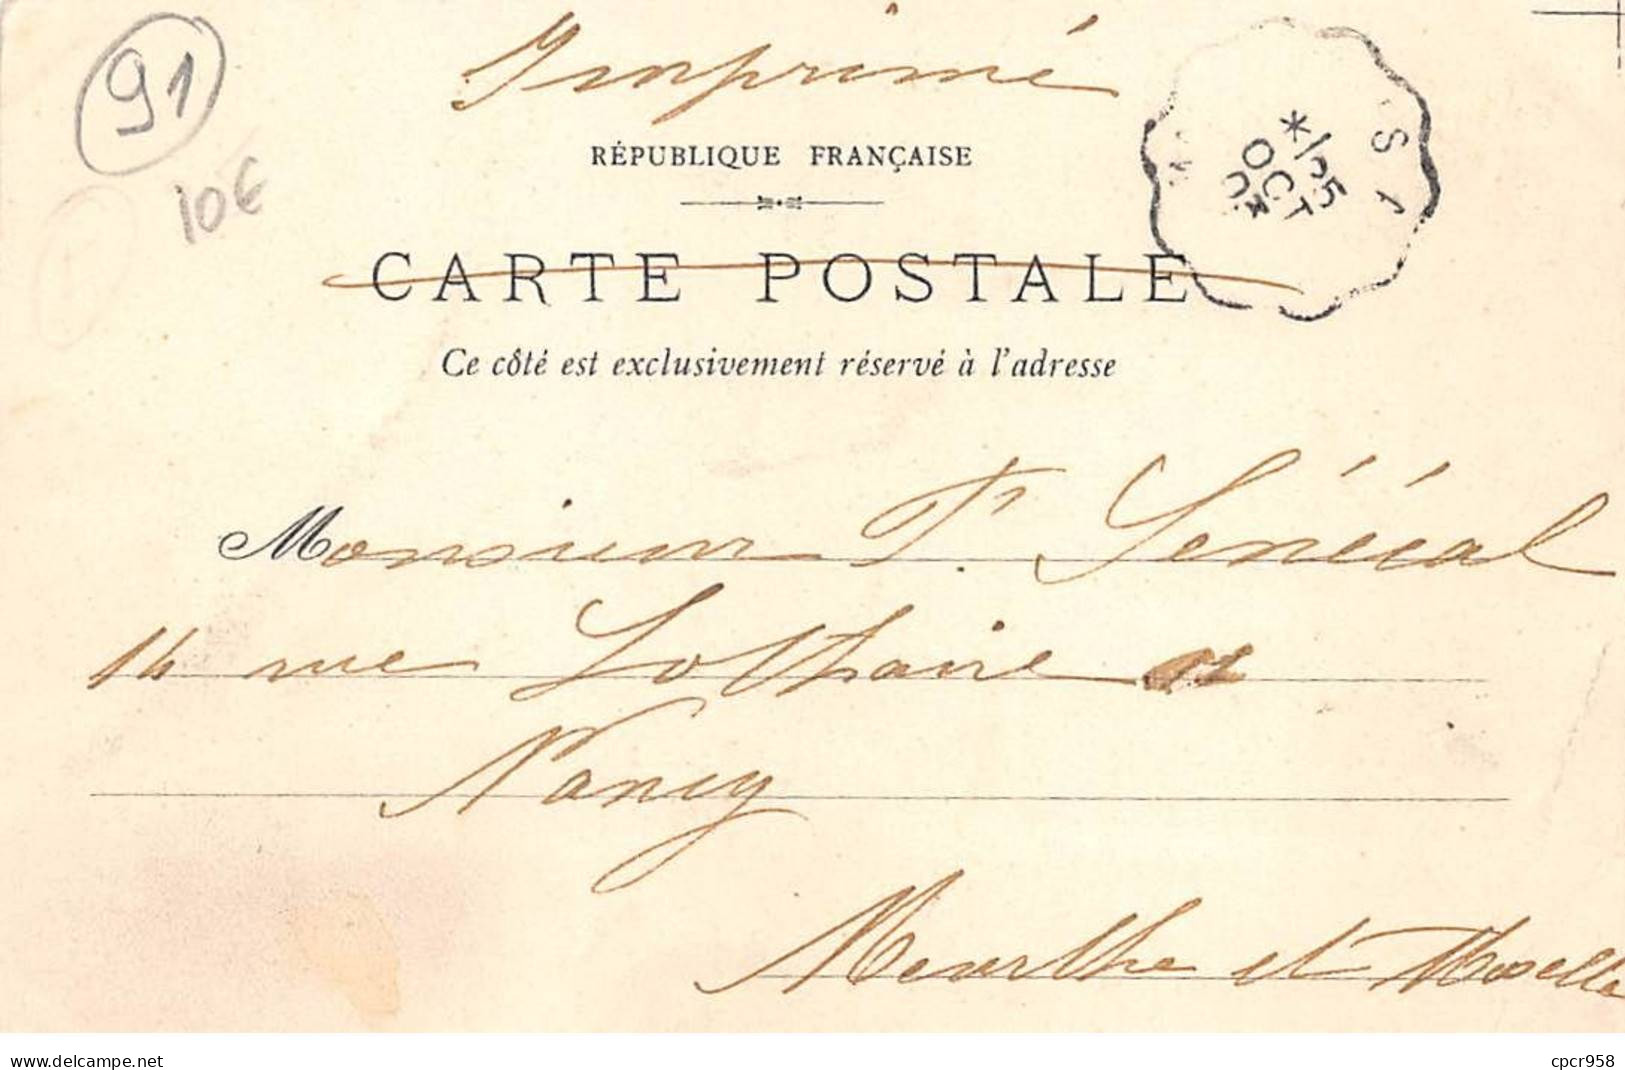 Imprimé
91
10€
RÉPUBLIQUE FRANÇAISE
CARTE POSTALE
Ce côté est exclusivement réservé à l'adresse
OCT
03
Monsieur F. Sénécal
14 rue Lothaire
Nancy
Meurthe et Moselle
www.delcampe.net
cpcr958